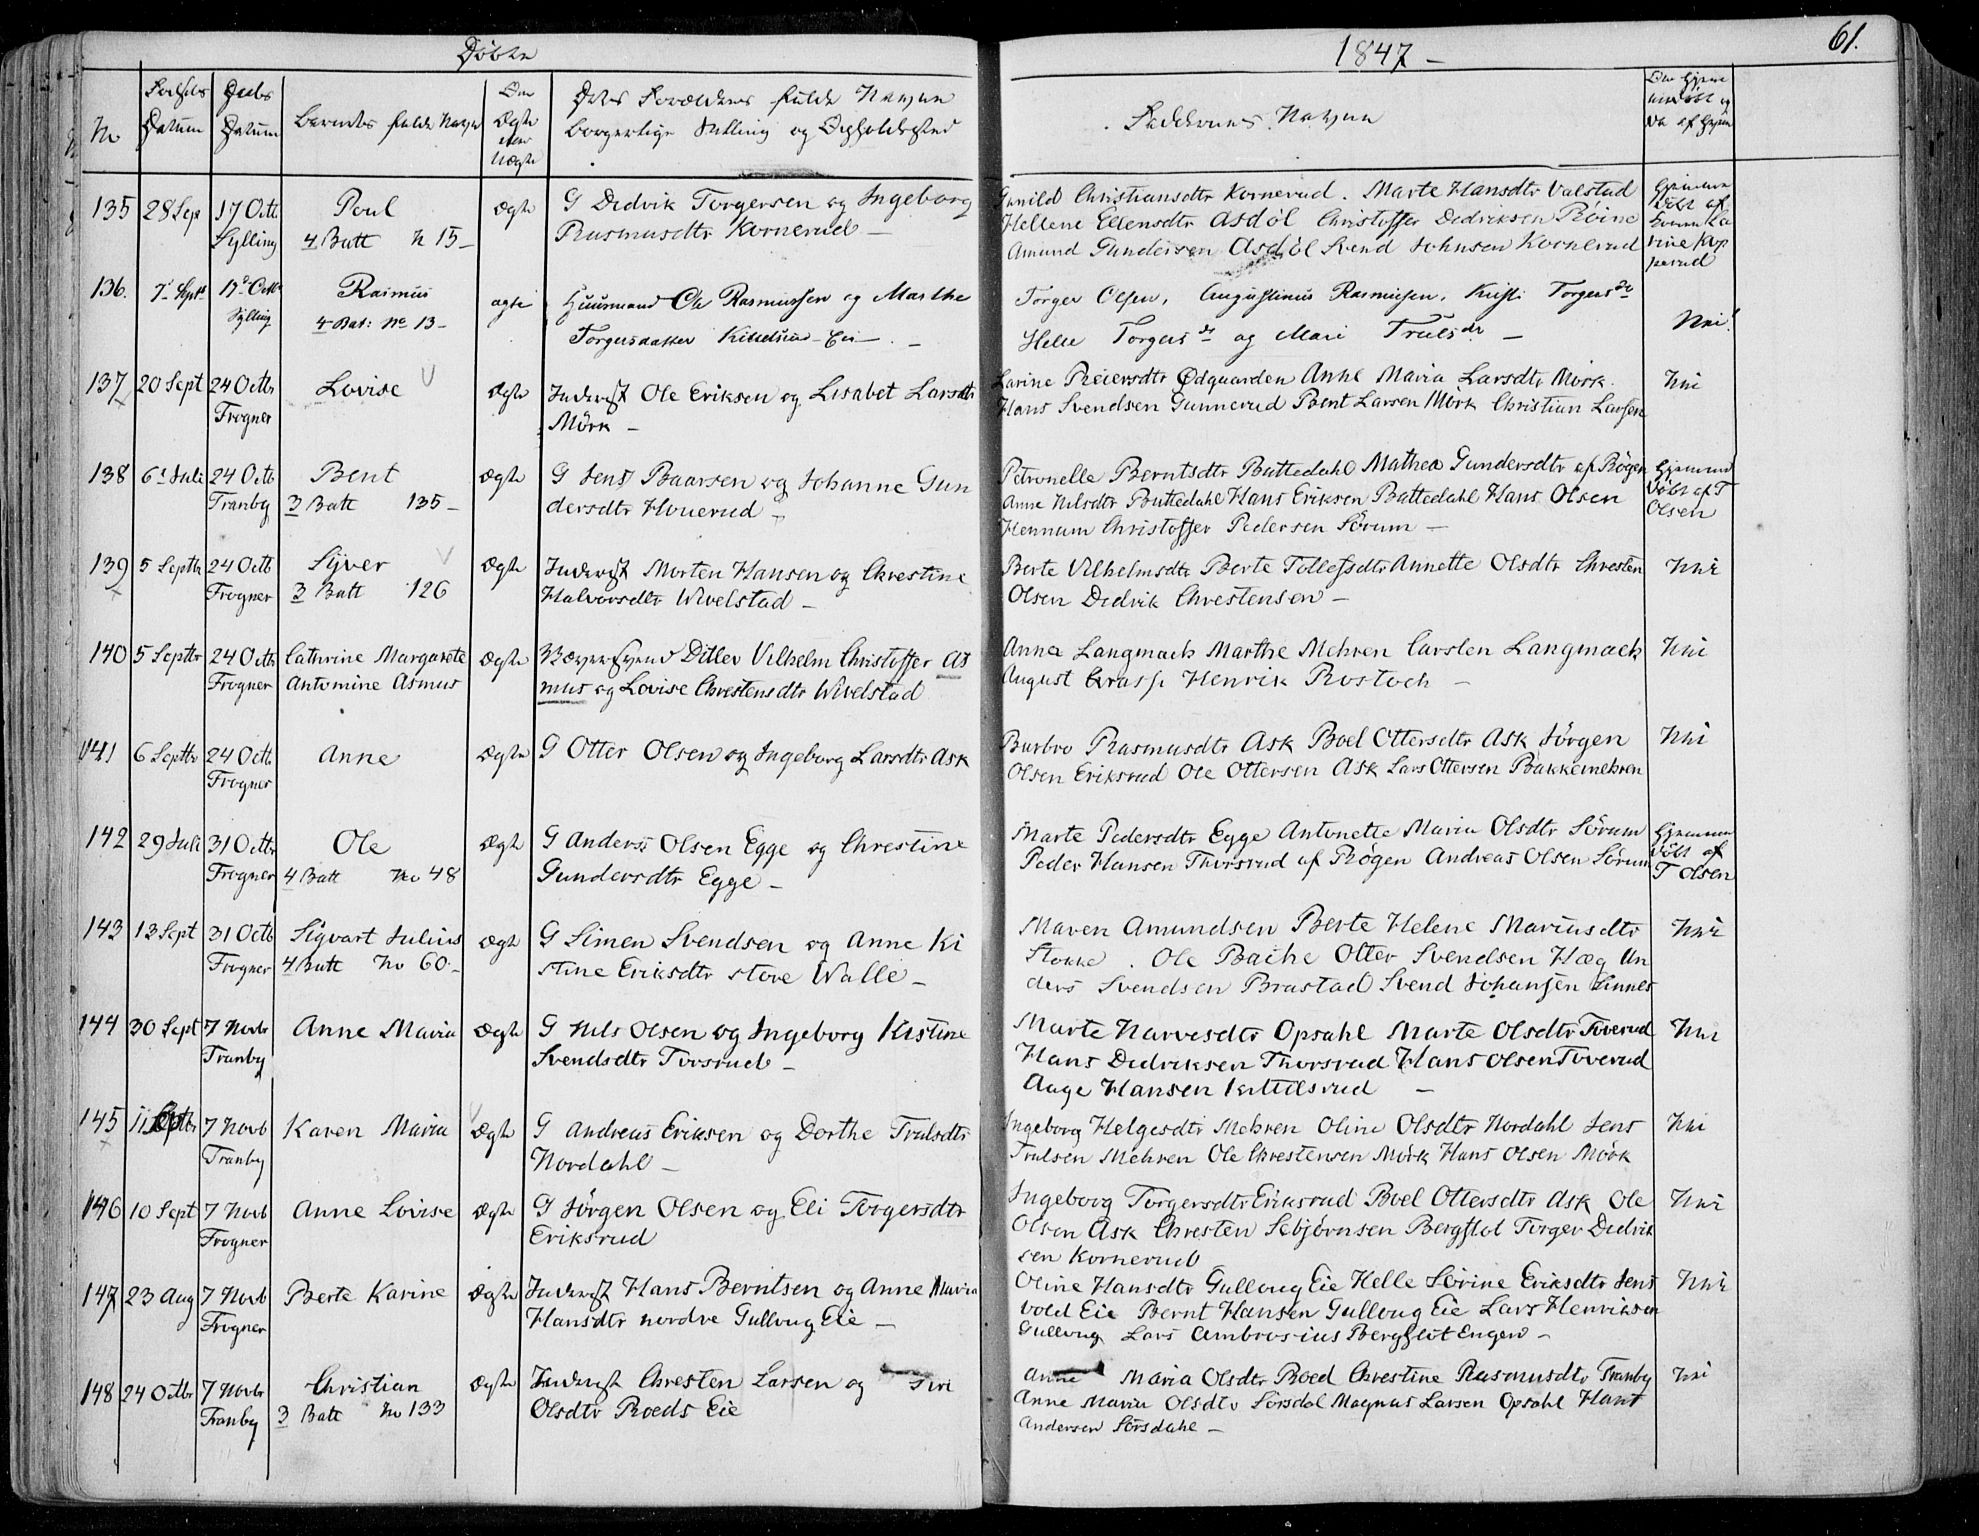 Døbte
1847 –
61.
No
Fødsels Datum
Daabs Datum
Barnets fulde Navn
Om Ægte eller Uægte
Deres Forældres fulde Navne
borgerlige Stilling og Opholdssted
Faddernes Navne
135 28 Sep 17 Octb. Poul ægte G Dedvik Torgersen og Ingeborg
Sylling 4 Batt N 15 – Rasmusdtr Kornerud –
Gunild Christiansdtr Kornerud. Marte Hansdtr Valstad
Hellene Ellensdtr Asdøl Christoffer Dedriksen Røine
Amund Gundersen Asdøl Svend Johnsen Kornerud
Hjemme
døbt af
136. 7 Sept 17 Octb Rasmus ægte Huusmand Ole Rasmussen og Marthe
Sylling 4 Bat: No 13 – Torgersdatter Kittelsrud-Eie –
Torger Olsen, Augustinus Rasmusen, Kristi Torgersdr
Helle Torgersdr og Mari Trulsdr –
Nei!
137 20 Sept 24 Octb Lovise ægte Inderst Ole Eriksen og Lisabet Larsdtr
Frogner Mörk –
Larine Reiersdtr Ødgaarden Anne Maria Larsdtr Mörk.
Hans Svendsen Gunnerud Bent Larsen Mörk Christian Larsen
Nei
138 6 Juli 24 Octb Bent ægte G Jens Baarsen og Johanne Gun
Tranby 3 Batt 135 – dersdtr Houerud –
Petronelle Berntsdtr Battedahl Mathea Gundersdtr af Røgen
Anne Nilsdtr Battedahl Hans Eriksen Battedahl Hans Olsen
Hennum Christoffer Pedersen Sörum –
Hjemme
døbt af T
Olsen
139 5 Septbr 24 Octb Syver ægte Inderst Morten Hansen og Chrestine
Frogner 3 Batt 126 Halvorsdtr Wivelstad –
Berte Vilhelmsdtr Berte Tollefsdtr Annette Olsdtr Chresten
Olsen Dedrik Chrestensen –
Nei
140 5 Septbr 24 Octb Cathrine Margarete ægte Ditlev Vilhelm Christoffer As
Frogner Antomine Asmus mus og Lovise Chrestensdtr Wivelstad
Anna Langmack Marthe Mehren Carsten Langmack
August Henrik Rostoch –
Nei
141 6 Septbr 24 Octb. Anne ægte G Otter Olsen og Ingeborg Larsdtr Ask
Frogner
Barbro Rasmusdtr Ask Boel Ottersdtr Ask Jörgen
Olsen Eriksrud Ole Ottersen Ask Lars Ottersen Bakkemehren
Nei
142 29 Juli 31 Octbr Ole ægte G Anders Olsen Egge og Chrestine
Frogner 4 Batt No 48 Gundersdtr Egge –
Marte Pedersdtr Egge Antonette Maria Olsdtr Sörum
Peder Hansen Thorsrud af Røgen Andreas Olsen Sörum
Hjemme
døbt af
T Olsen
143 13 Sept 31 Octb Sigvart Julius ægte G Simen Svendsen og Anne Ki
Frogner 4 Batt No 60 – stine Eriksdtr store Walle –
Maren Amundsen Berte Helene Mariusdtr
Stokke. Ole Bache Otter Svendsen Hæg An
ders Svendsen Brastad Svend Johansen Linnes
Nei
144 30 Sept 7 Novbr Anne Maria ægte G Nils Olsen og Ingeborg Kistine
Tranby Svendsdtr Torsrud –
Marte Narvesdtr Opsahl Marte Olsdtr Toverud
Hans Dedriksen Thorsrud Hans Olsen Toverud
Auge Hansen Kittilsrud –
Nei
145 11 Septbr 7 Novb Karen Maria ægte G Andreas Eriksen og Dorthe Trulsdtr
Tranby Nordahl –
Ingeborg Helgesdtr Mehren Oline Olsdtr Nordahl Jens
Trulsen Mehren Ole Chrestensen Mörk Hans Olsen Mörk
Nei
146 10 Sept 7 Novb Anne Lovise ægte G Jörgen Olsen og Eli Torgersdtr
Frogner Eriksrud
Ingeborg Torgersdtr Eriksrud Boel Ottersdtr Ask Ole
Olsen Ask Chresten Sebjörnsen Bergflot Torger Dedrik
sen Kornerud
Nei
147 23 Aug 7 Novb Berte Karine ægte Inderst Hans Berntsen og Anne Maria
Frogner Hansdtr nordre Gulloug Eie –
Oline Hansdtr Gulloug Eie Helle Sörine Eriksdtr Jens
vold Eie Bernt Hansen Gulloug Eie Lars Henriksen
Gulloug Lars Ambrosius Bergflot Engen –
Nei
148 24 Octbr 7 Novbr Christian ægte Inderst Chresten Larsen og Siri
Tranby 3 Batt No 133 Olsdtr Roeds Eie
Anne Maria Olsdtr Roed Chrestine Rasmusdtr Tranby
Anne Maria Olsdtr Sörsdal Magnus Larsen Opsahl Hans
Andersen Sörsdahl –
Nei